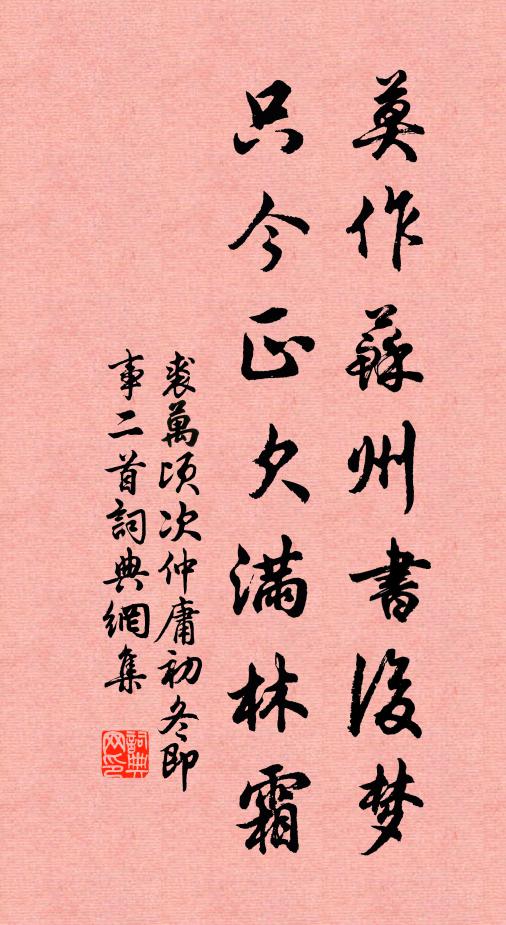 莫作蘇州書後夢
只今正欠滿林霜
裘萬頃次仲庸初冬即
事二首詞典網集
詞典
网印